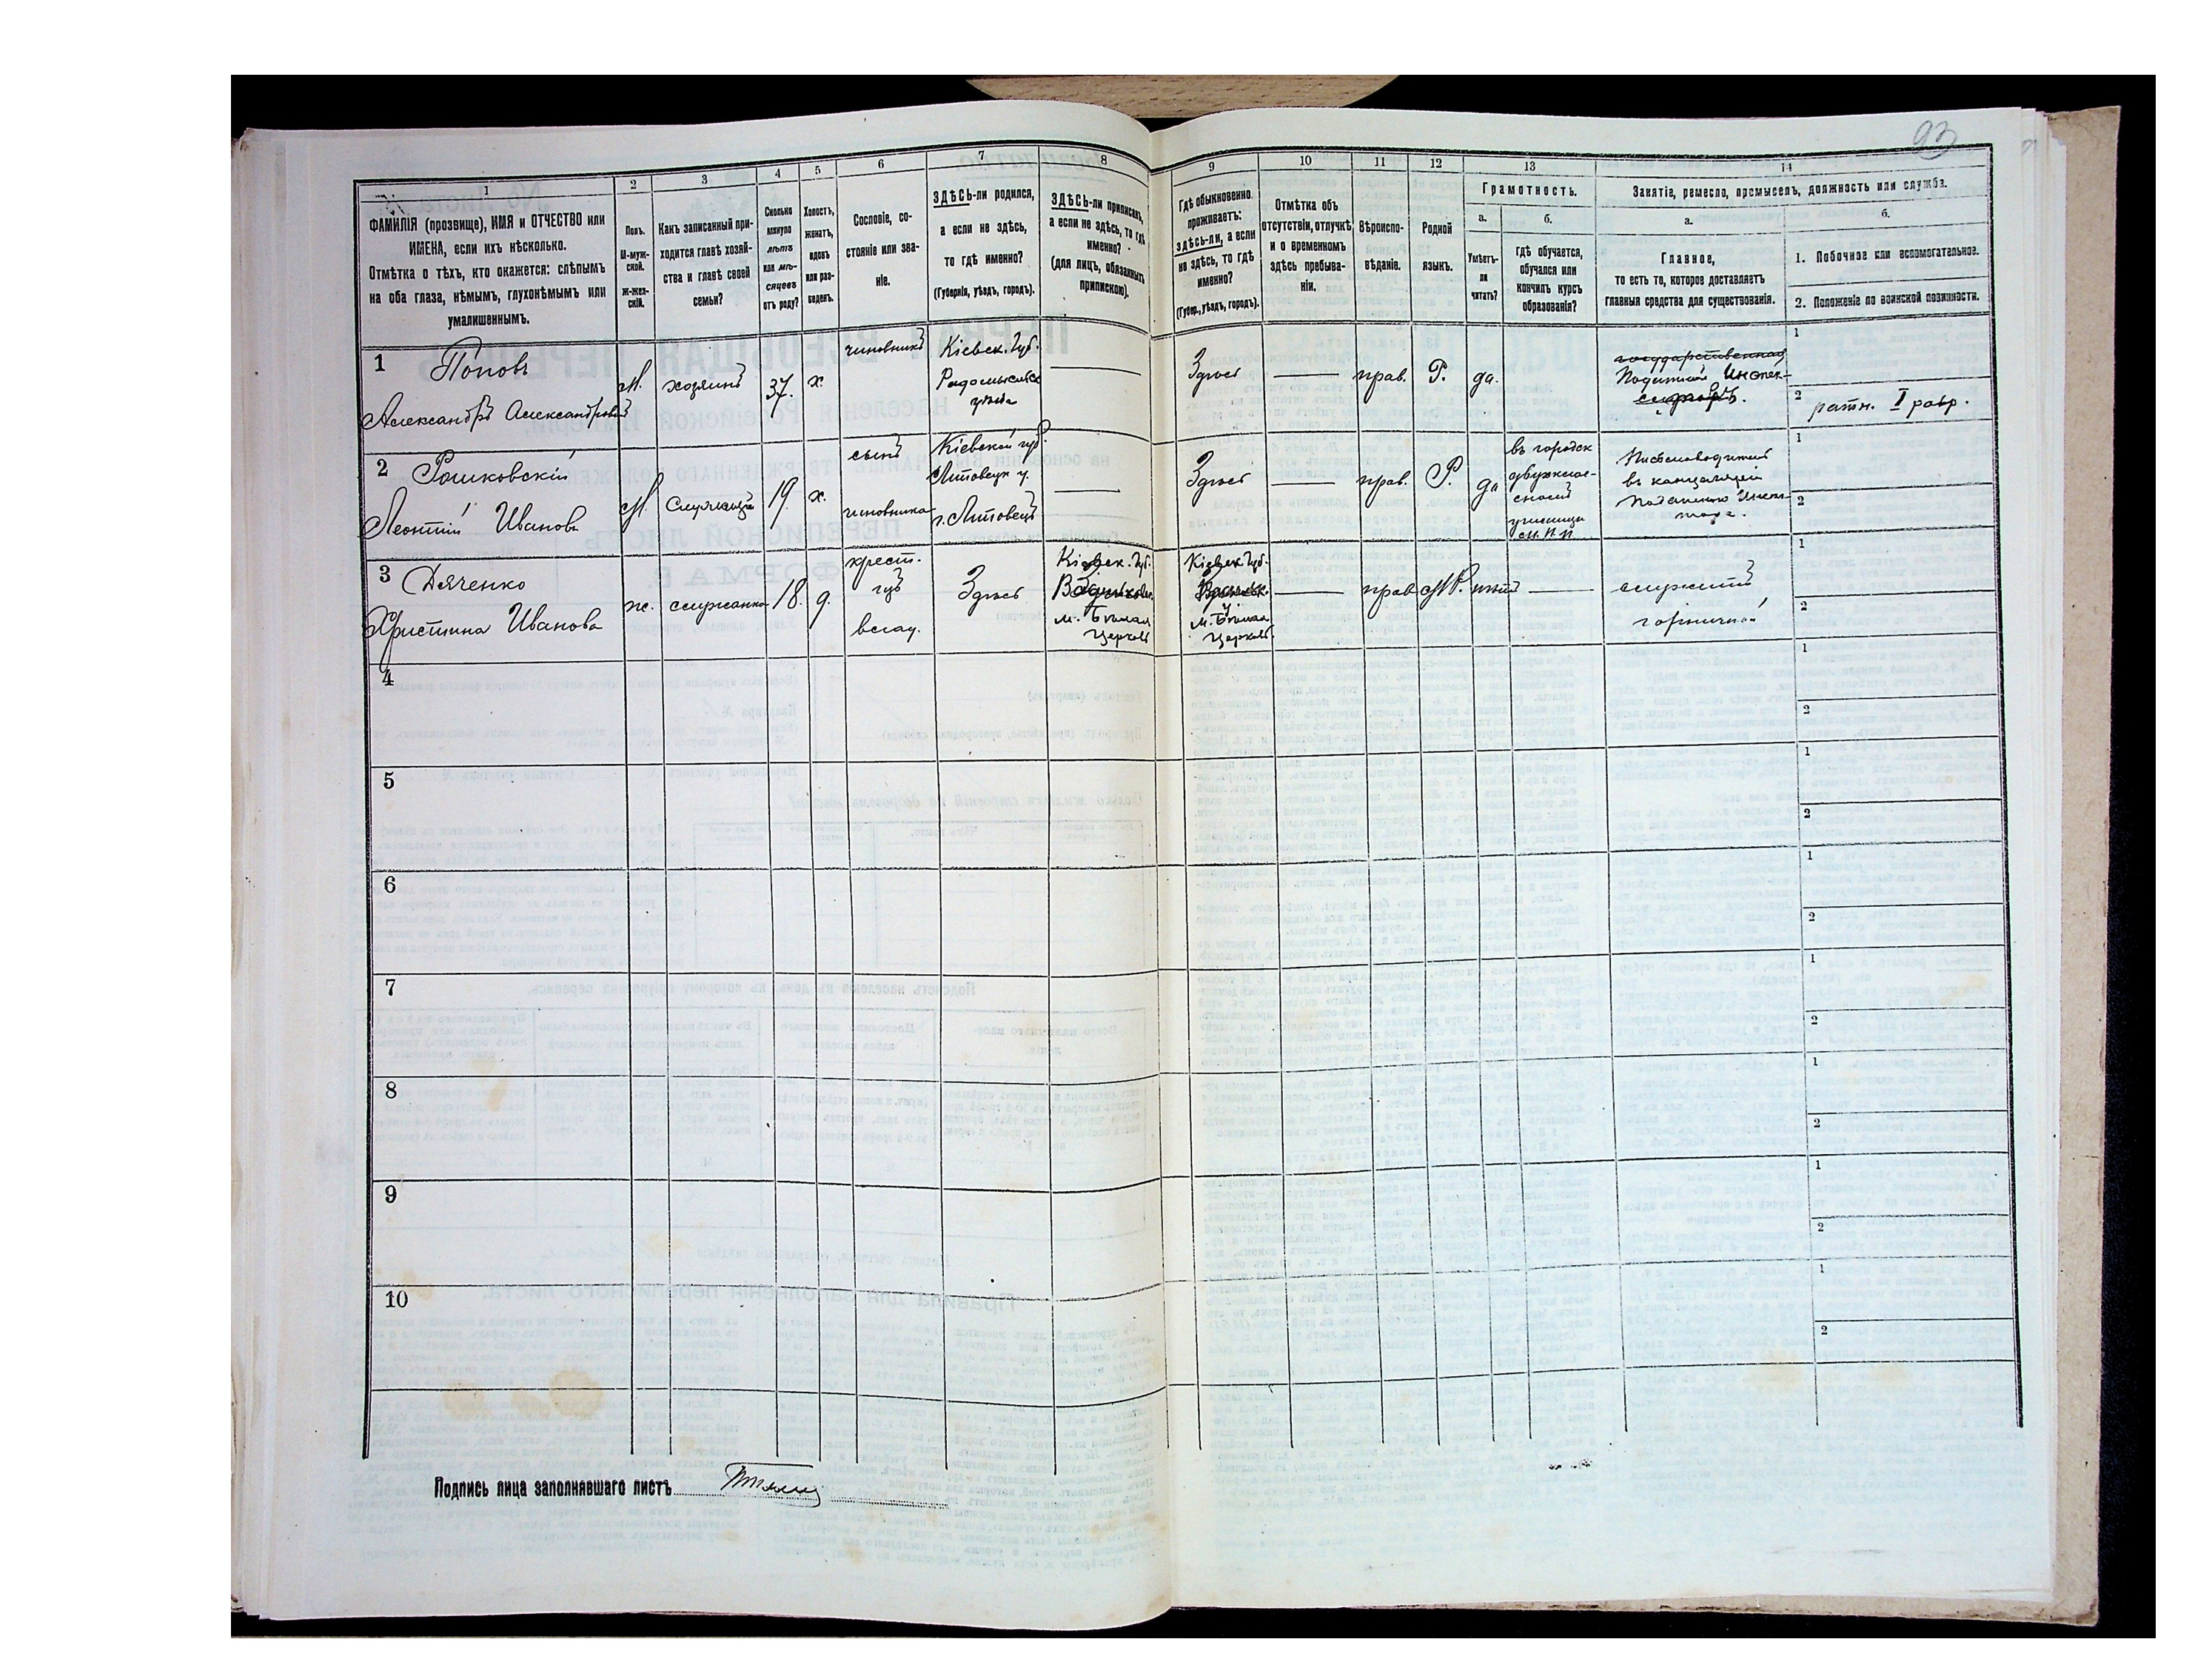 93
1
2
3
4
5
6
7
8
9
10
11
12
13
14
ФАМИЛІЯ (прозвище), ИМЯ и ОТЧЕСТВО или
ИМЕНА, если ихъ нѣсколько.
Отмѣтка о тѣхъ, кто окажется: слѣпымъ
на оба глаза, нѣмымъ, глухонѣмымъ или
умалишеннымъ.
Полъ.
М-муж-
ской.
Ж-жен-
скій.
Какъ записанный при-
ходится главѣ хозяй-
ства и главѣ своей
семьи?
Сколько
минуло
лѣтъ
или мѣ-
сяцевъ
отъ роду?
Холостъ,
женатъ,
вдовъ
или раз-
веденъ.
Сословіе, со-
стояніе или зва-
ніе.
ЗДѢСЬ-ли родился,
а если не здѣсь,
то гдѣ именно?
(Губернія, уѣздъ, городъ).
ЗДѢСЬ-ли приписанъ,
а если не здѣсь, то гдѣ
именно?
(для лицъ, обязанныхъ
припискою).
Гдѣ обыкновенно
проживаетъ:
здѣсь-ли, а если
не здѣсь, то гдѣ
именно?
(Губер., уѣздъ, городъ).
Отмѣтка объ
отсутствіи, отлучкѣ
и о временномъ
здѣсь пребыва-
ніи.
Вѣроиспо-
вѣданіе.
Родной
языкъ.
Грамотность.
а.
б.
Умѣетъ-
ли
читать?
Гдѣ обучается,
обучался или
кончилъ курсъ
образованія?
Занятіе, ремесло, промыселъ, должность или служба.
а.
б.
Главное,
то есть то, которое доставляетъ
главныя средства для существованія.
1. Побочное или вспомогательное.
2. Положеніе по воинской повинности.
1
Поповъ
Александръ Александровъ
М.
хозяинъ
37.
х.
чиновникъ
Кіевск. Губ.
Радомысльск
уѣзда
Здѣсь
прав.
Р.
да.
государственная
Податной Инспек-
1
2
ратн. I разр.
2
Рошковскій
Леонтій Ивановъ
М.
Служащій
19
х.
сынъ
чиновника
Кіевской губ.
Липовецк у.
г. Липовецъ
Здѣсь
прав.
Р.
да
въ городск
двухклас-
сномъ
училищѣ
М. Н. П.
Письмоводитель
въ канцеляріи
1
2
3
Дяченко
Христина Иванова
ж.
служанка
18.
д.
крест.
Здѣсь
Кіевск. Губ.
м. Бѣлая
Церковь
Кіевск. Губ.
м. Бѣлая
Церковь
прав
М.Р.
нѣтъ
служитъ
горничной
1
2
4
1
2
5
1
2
6
1
2
7
1
2
8
1
2
9
1
2
10
1
2
Подпись лица заполнявшаго листъ